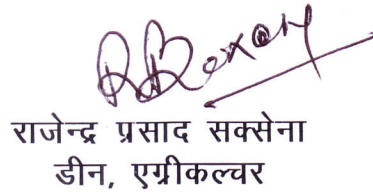 राजेन्द्र प्रसाद सक्सेना
डीन, एग्रीकल्चर